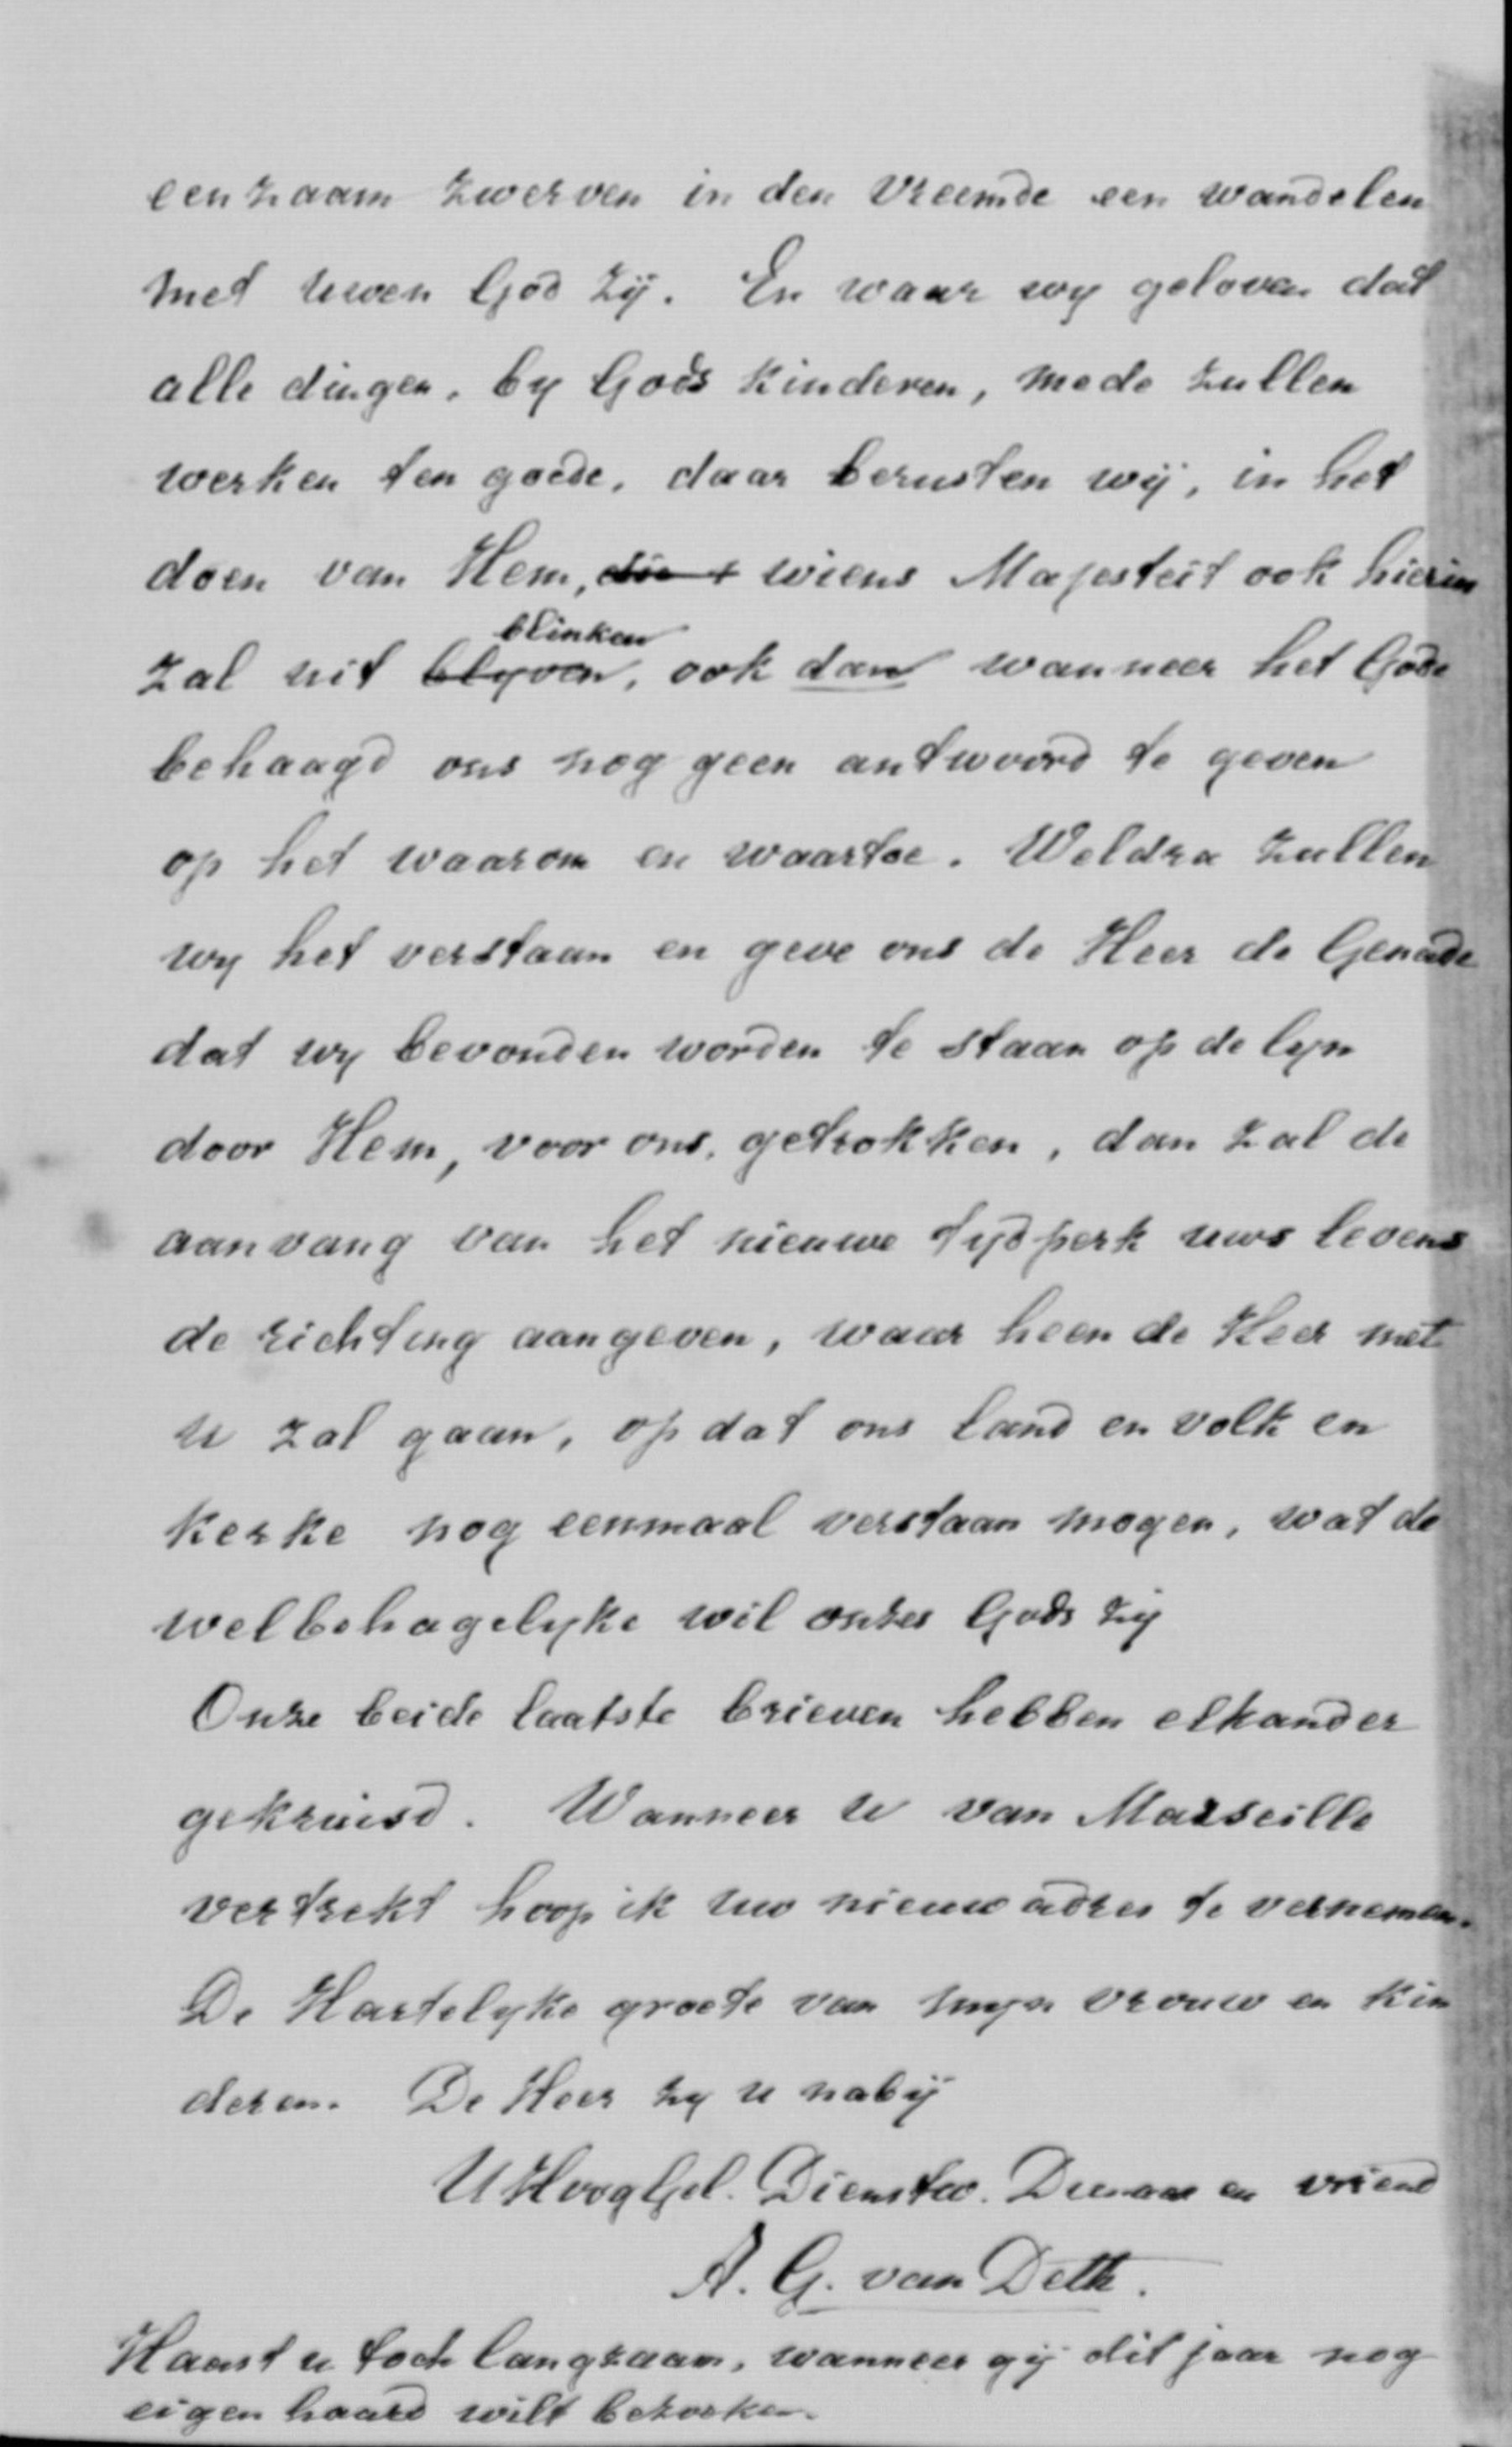 eenzaam zwerven in den vreemde een wandelen
met uwen God zij. En waar wy geloven dat
alle dingen, by Gods kinderen, mede zullen
werken ten goede, daar berusten wij, in het
doen van Hem, die t wiens Majesteit ook hierin
blinken
zal uit blyven, ook dan wanneer het Gode
behaagd ons nog geen antwoord te geven
op het waarom en waartoe. Weldra zullen
wy het verstaan en geve ons de Heer de Genade
dat wy bevonden worden te staan op de lyn
door Hem, voor ons, getrokken, dan zal de
aanvang van het nieuwe tydperk uws levens
de richting aangeven, waar heen de Heer met
u zal gaan, op dat ons land en volk en
kerke nog eenmaal verstaan mogen, wat de
welbehagelyke wil onzes Gods zij
Onze beide laatste brieven hebben elkander
gekruisd. Wanneer u van Marseille
vertrekt hoop ik uw nieuw adres te vernemen.
De Hartelyke groete van myn vrouw en kin
deren. De Heer zy u nabij
UHoogGel. Dienstw. Dienaar en vriend
A. G. van Deth.
Haast u toch langzaam, wanneer gij dit jaar nog
eigen haard wilt bezoeken.